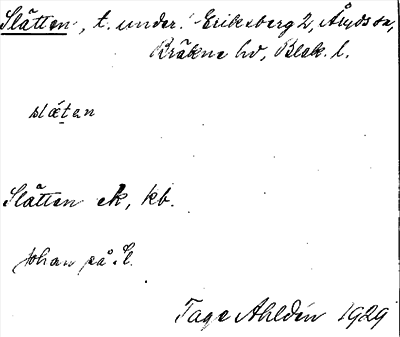 Slätten, t. under Eriksberg 2, Åryds sn,
Bräkne hd, Blek. l.
slätan
Slätten ek, kb.
Johan på S.
Tage Ahldén 1929